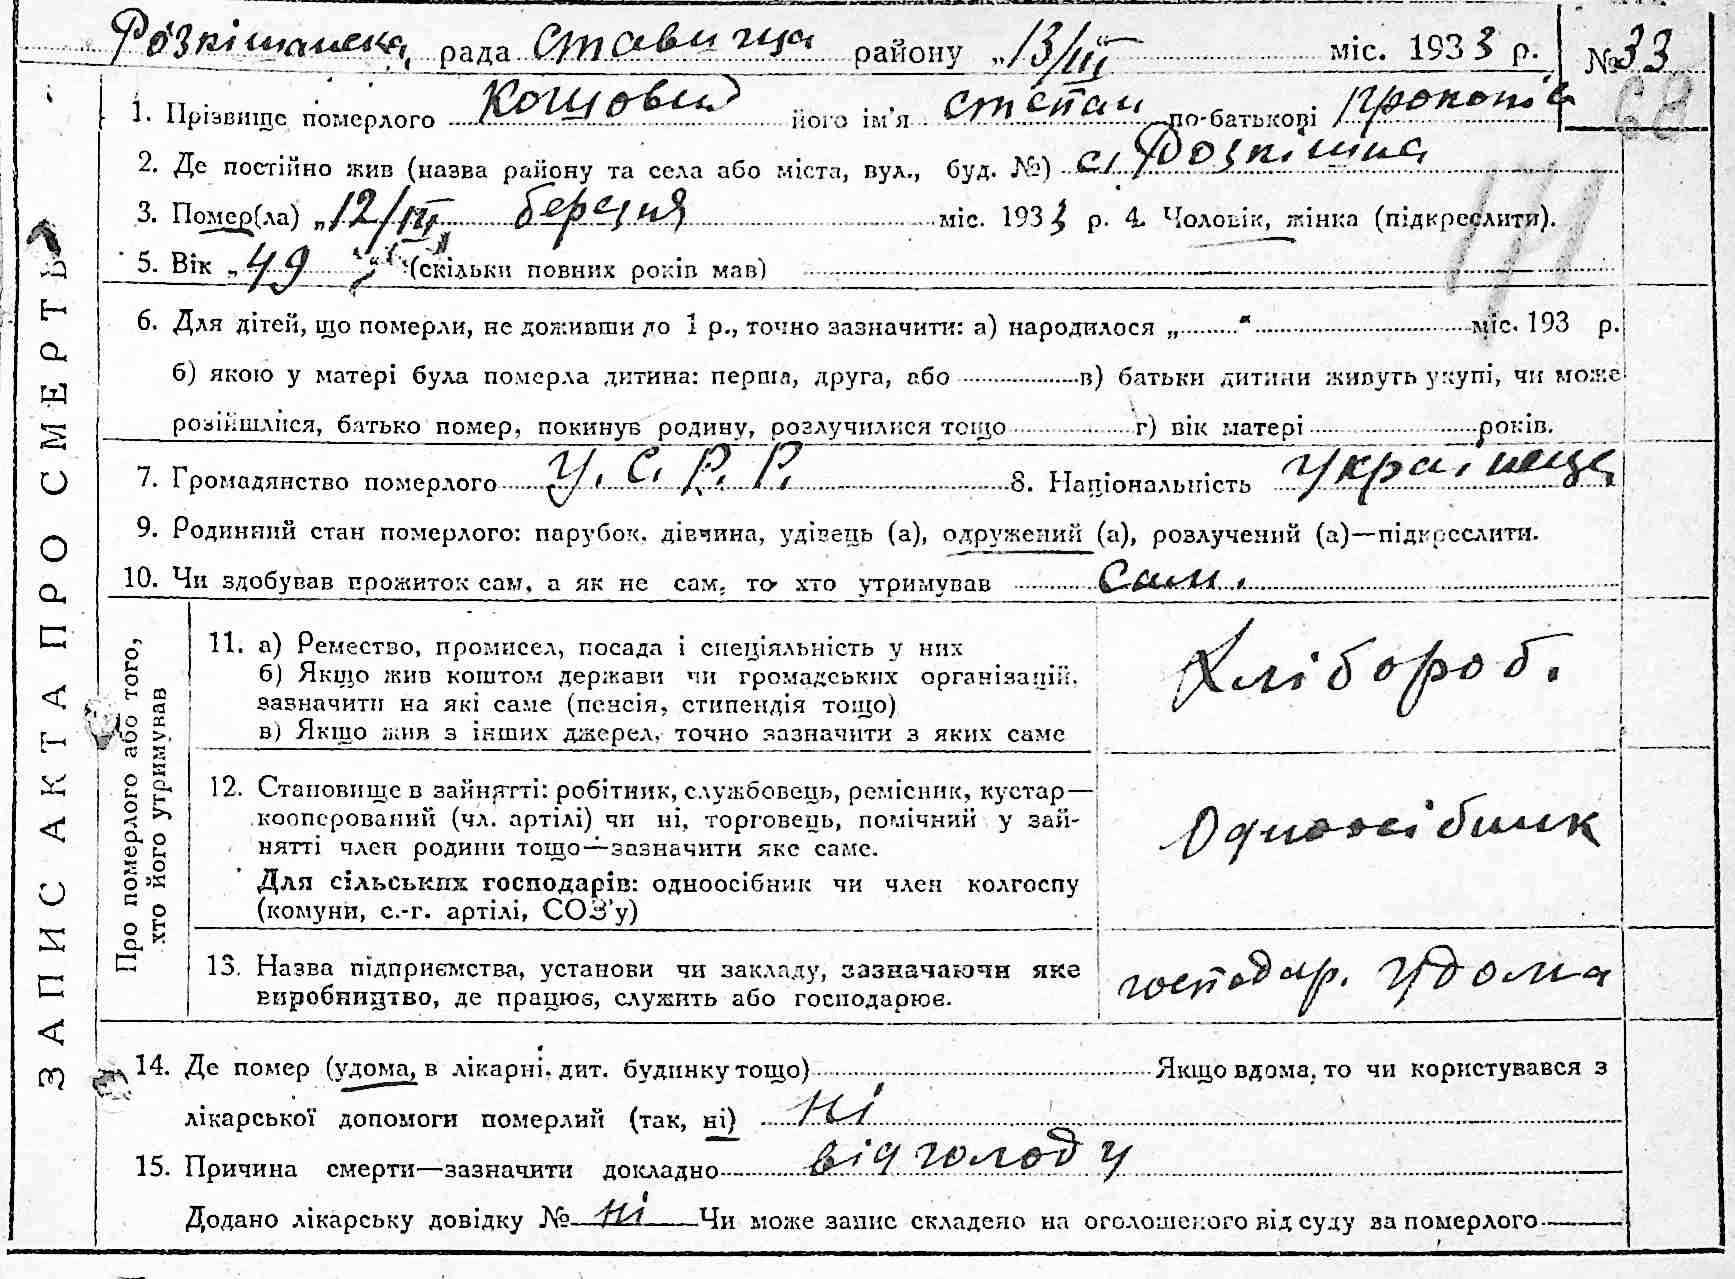 Розкішанска рада Ставища району „13/III“ міс. 1933 р. № 33
68
1. Прізвище померлого Кошовий його ім'я Степан по-батькові Прокопів
2. Де постійно жив (назва району та села або міста, вул., буд. №) с. Розкішна
3. Помер(ла) „12/III березня міс. 1933 р. 4. Чоловік, жінка (підкреслити).
5. Вік „49“ (скільки повних років мав)
6. Для дітей, що померли, не доживши до 1 р., точно зазначити: а) народилося „ “ міс. 193 р.
б) якою у матері була померла дитина: перша, друга, або в) батьки дитини живуть укупі, чи може
розійшлися, батько помер, покинув родину, розлучилися тощо г) вік матері років.
7. Громадянство померлого У. С. Р. Р. 8. Національність Українець
9. Родинний стан померлого: парубок, дівчина, удівець (а), одружений (а), розлучений (а)—підкреслити.
10. Чи здобував прожиток сам, а як не сам, то хто утримував Сам.
ЗАПИС АКТА ПРО СМЕРТЬ
Про померлого або того,
хто його утримував
11. а) Ремество, промисел, посада і спеціяльність у них
б) Якщо жив коштом держави чи громадських організацій,
зазначити на які саме (пенсія, стипендія тощо)
в) Якщо жив з інших джерел, точно зазначити з яких саме
Хлібороб.
12. Становище в зайнятті: робітник, службовець, ремісник, кустар—
кооперований (чл. артілі) чи ні, торговець, помічний у зай-
нятті член родини тощо—зазначити яке саме.
Для сільських господарів: одноосібник чи член колгоспу
(комуни, с.-г. артілі, СОЗ'у)
Одноосібник
13. Назва підприємства, установи чи закладу, зазначаючи яке
виробництво, де працює, служить або господарює.
господар. удома
14. Де помер (удома, в лікарні, дит. будинку тощо) Якщо вдома, то чи користувався з
лікарської допомоги померлий (так, ні) ні
15. Причина смерти—зазначити докладно від голоду
Додано лікарську довідку № ні Чи може запис складено на оголошеного від суду за померлого